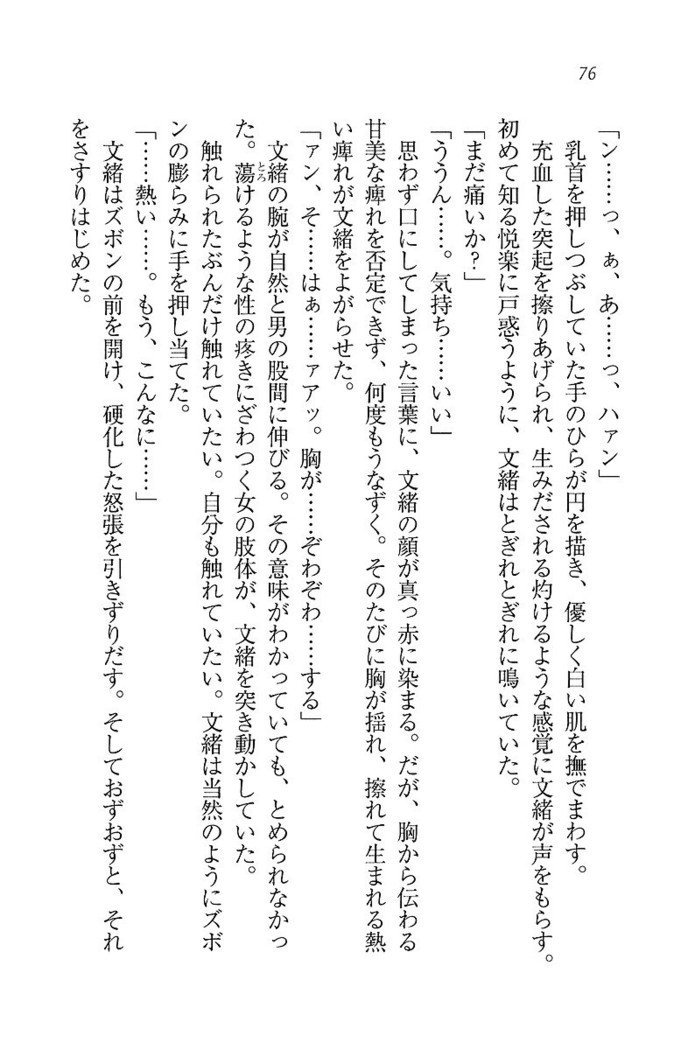 76
「ン……っ、ぁ、あ……っ、ハァン」
乳首を押しつぶしていた手のひらが円を描き、優しく白い肌を撫でまわす。
充血した突起を擦りあげられ、生みだされる灼けるような感覚に文緒が声をもらす。
初めて知る悦楽に戸惑うように、文緒はとぎれとぎれに鳴いていた。
「まだ痛いか？」
「ううん……。気持ち……いい」
思わず口にしてしまった言葉に、文緒の顔が真っ赤に染まる。だが、胸から伝わる
甘美な痺れを否定できず、何度もうなずく。そのたびに胸が揺れ、擦れて生まれる熱
い痺れが文緒をよがらせた。
「ァン、そ……はぁ……ァアッ。胸が……ぞわぞわ……する」
文緒の腕が自然と男の股間に伸びる。その意味がわかっていても、とめられなかっ
た。蕩けるような性の疼きにざわつく女の肢体が、文緒を突き動かしていた。
触れられたぶんだけ触れていたい。自分も触れていたい。文緒は当然のようにズボ
ンの膨らみに手を押し当てた。
「……熱い……。もう、こんなに……」
文緒はズボンの前を開け、硬化した怒張を引きずりだす。そしておずおずと、それ
をさすりはじめた。